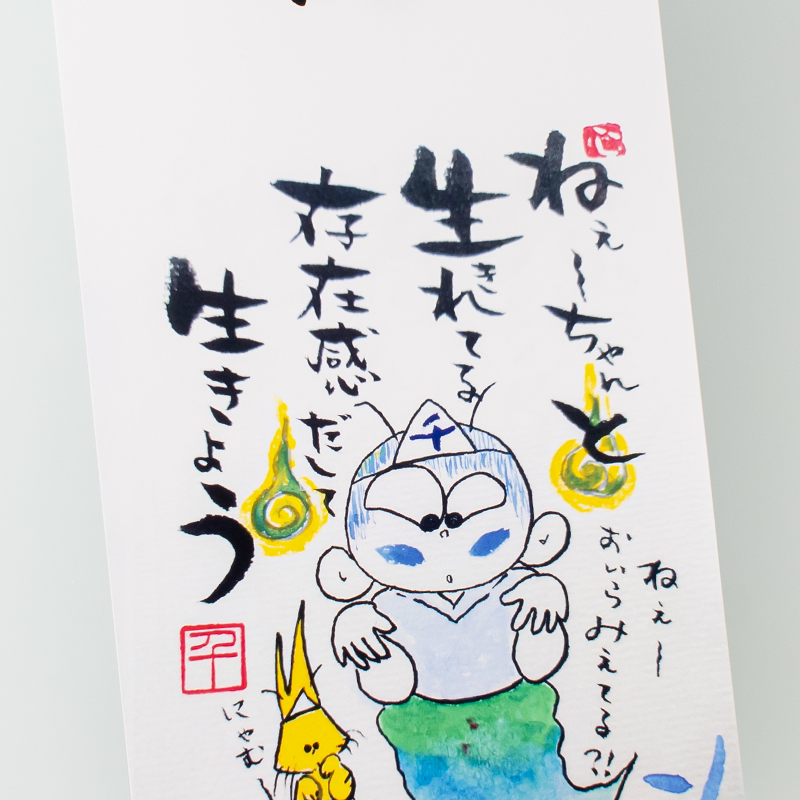 ねぇ〜ちゃんと
生きれてる
存在感だして
生きよう
千
ねぇ〜
おいらみえてる?!
にゃむ〜